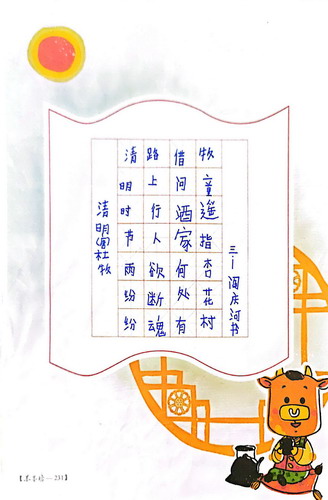 清明(唐)杜牧
清明时节雨纷纷
路上行人欲断魂
借问酒家何处有
牧童遥指杏花村
三一 阎庆河书
231